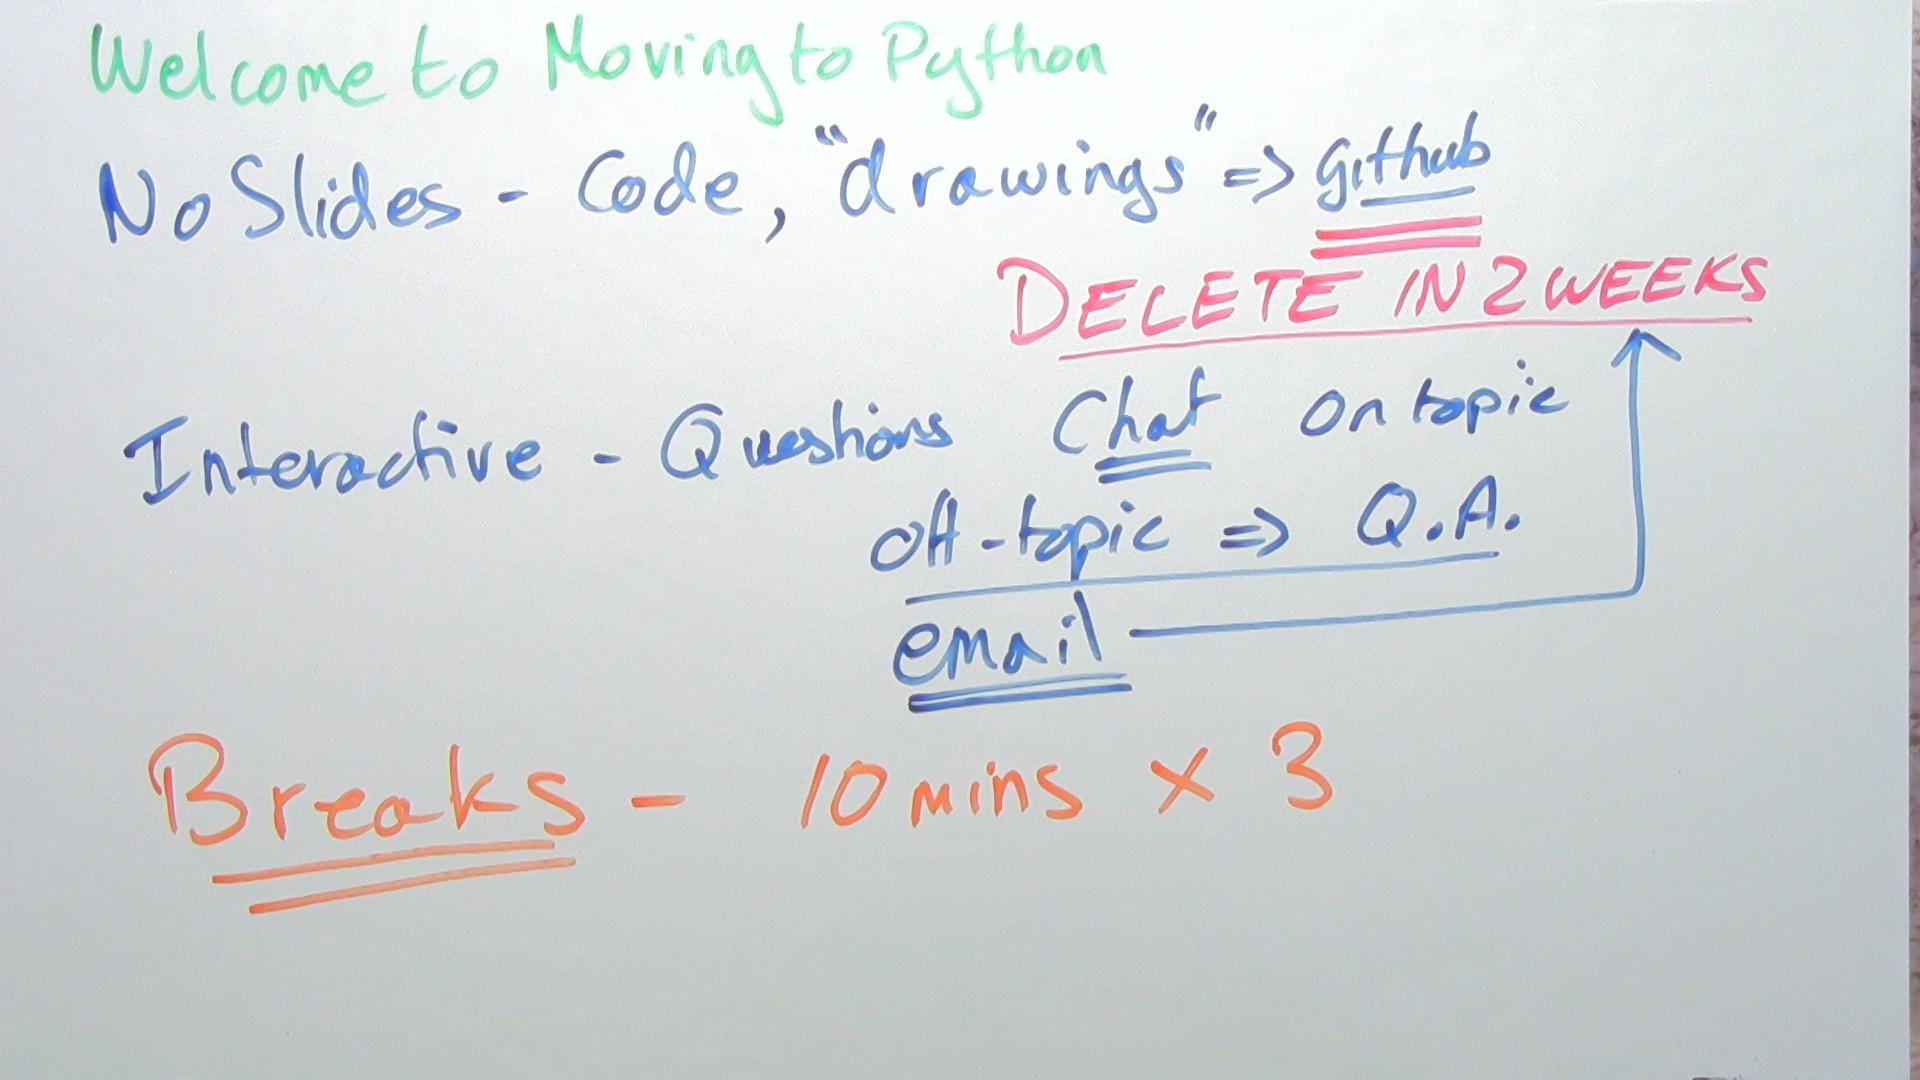 Welcome to Moving to Python
No Slides - Code, "drawings" => github
DELETE IN 2 WEEKS
Interactive - Questions Chat On topic
off-topic => Q.A.
email
Breaks - 10 mins x 3